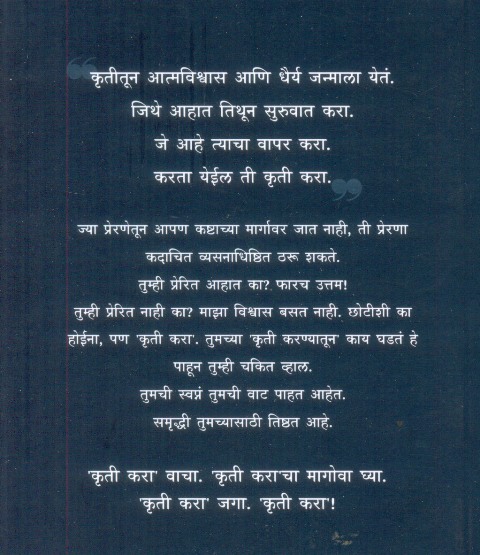 “कृतीतून आत्मविश्वास आणि धैर्य जन्माला येतं.
जिथे आहात तिथून सुरुवात करा.
जे आहे त्याचा वापर करा.
करता येईल ती कृती करा.”
ज्या प्रेरणेतून आपण कष्टाच्या मार्गावर जात नाही, ती प्रेरणा
कदाचित व्यसनाधिष्ठित ठरू शकते.
तुम्ही प्रेरित आहात का? फारच उत्तम!
तुम्ही प्रेरित नाही का? माझा विश्वास बसत नाही. छोटीशी का
होईना, पण 'कृती करा'. तुमच्या 'कृती करण्यातून' काय घडतं हे
पाहून तुम्ही चकित व्हाल.
तुमची स्वप्नं तुमची वाट पाहत आहेत.
समृद्धी तुमच्यासाठी तिष्ठत आहे.
'कृती करा' वाचा. 'कृती करा'चा मागोवा घ्या.
'कृती करा' जगा. 'कृती करा'!